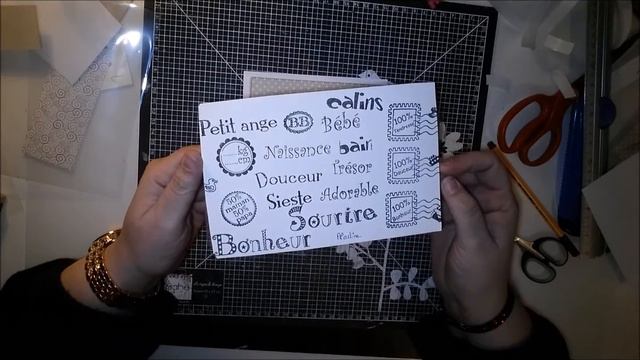 calins
Petit ange BB Bébé
100%
tendresse
kg
cm
Naissance bain
100%
Douceur
Douceur Trésor
50%
maman
50%
papa
Sieste Adorable
100%
Bonheur
Sourire
Bonheur